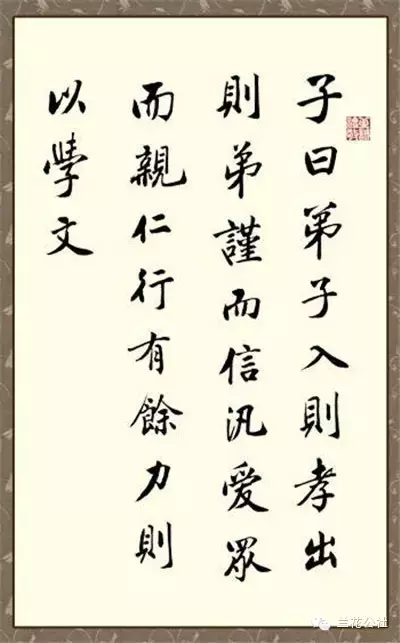 子曰弟子入則孝出
則弟謹而信汎愛眾
而親仁行有餘力則
以學文
兰花公社